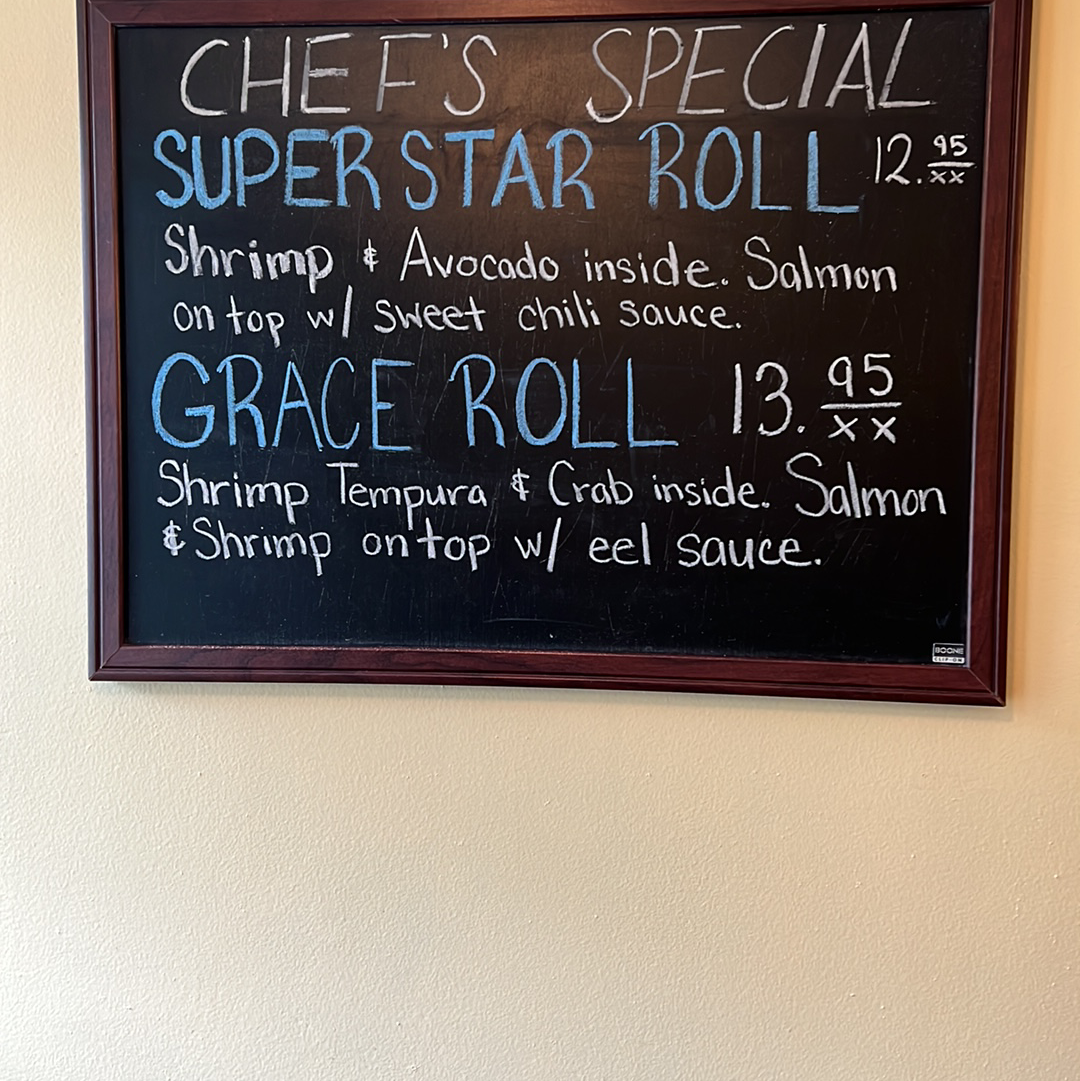 CHEF'S SPECIAL
SUPER STAR ROLL 12.95/xx
Shrimp & Avocado inside. Salmon
on top w/ sweet chili sauce.
GRACE ROLL 13.95/xx
Shrimp Tempura & Crab inside. Salmon
& Shrimp on top w/ eel sauce.
BOONE
CLIP-ON